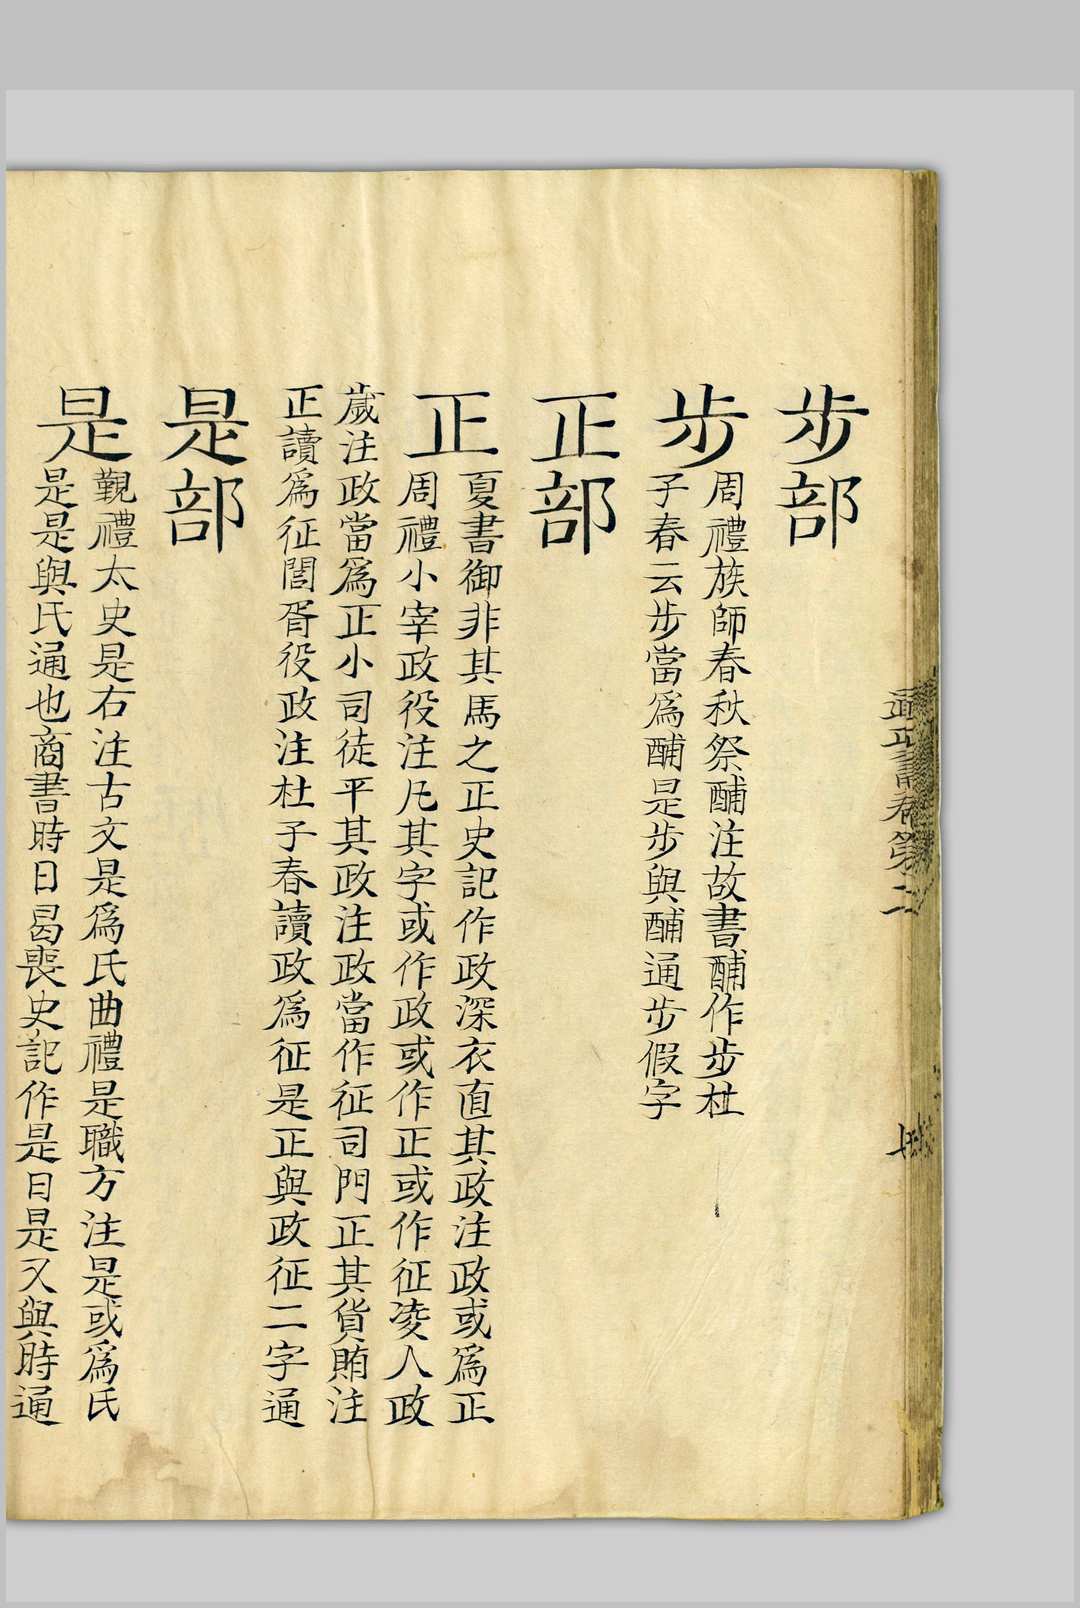 步部
步
周禮族師春秋祭酺注故書酺作步杜
子春云步當為酺是步與酺通步假字
正部
正
夏書御非其馬之正史記作政深衣直其政注政或為正
周禮小宰政役注凡其字或作政或作正或作征凌人政
歲注政當為正小司徒平其政注政當作征司門正其貨賄注
正讀為征閭胥役政注杜子春讀政為征是正與政征二字通
是部
是
覲禮太史是右注古文是為氏曲禮是職方注是或為氏
是是與氏通也商書時日曷喪史記作是日是又與時通
書卷第二